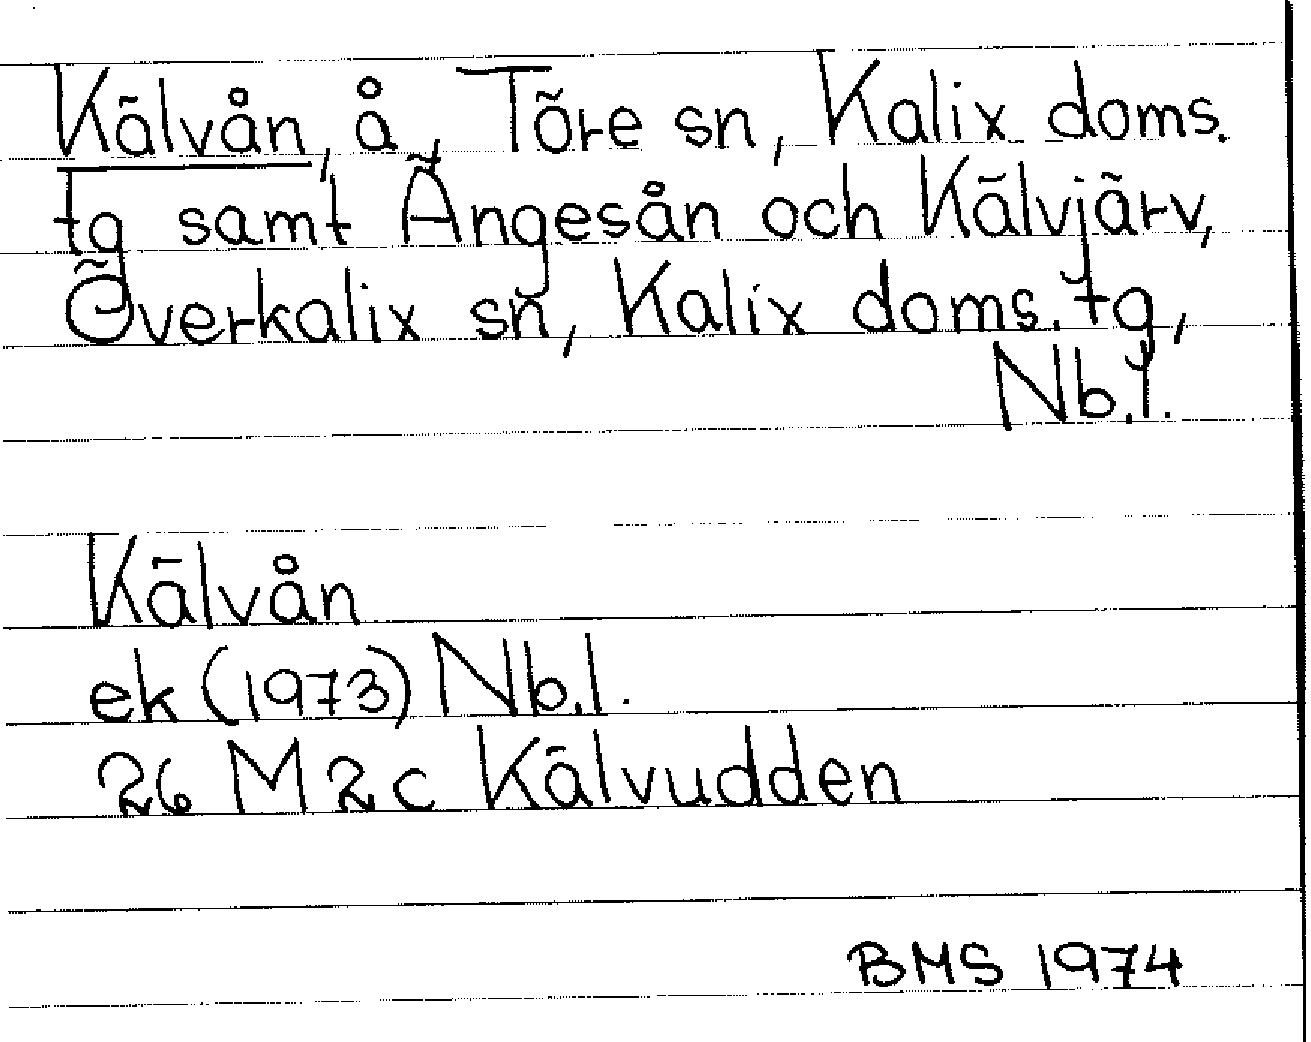 Kälvån, å, Töre sn, Kalix doms.
tg samt Ängesån och Kälvjärv,
Överkalix sn, Kalix doms. tg,
Nb.l.
Kälvån
ek (1973) Nb.l.
26 M 2 c Kälvudden
BMS 1974